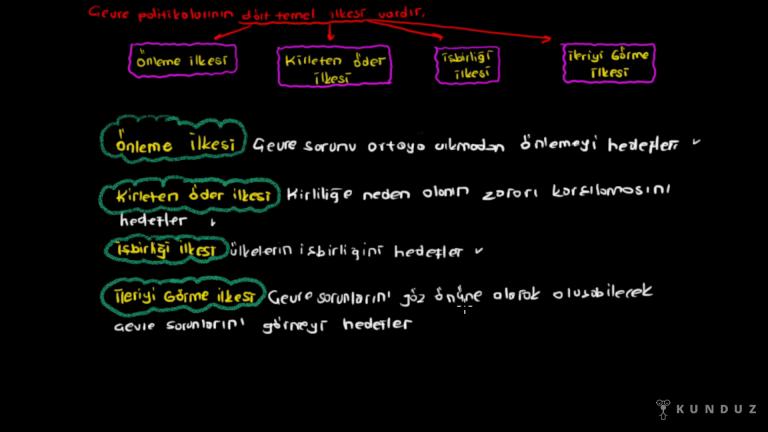 Çevre politikalarının dört temel ilkesi vardır.
Önleme ilkesi
Kirleten öder ilkesi
İşbirliği ilkesi
İleriyi Görme ilkesi
Önleme ilkesi Çevre sorunu ortaya çıkmadan önlemeyi hedefler
Kirleten öder ilkesi Kirliliğe neden olanın zararı karşılamasını
hedefler
İşbirliği ilkesi ülkelerin işbirliğini hedefler
İleriyi Görme ilkesi Çevre sorunlarını göz önüne alarak oluşabilecek
çevre sorunlarını görmeyi hedefler
KUNDUZ